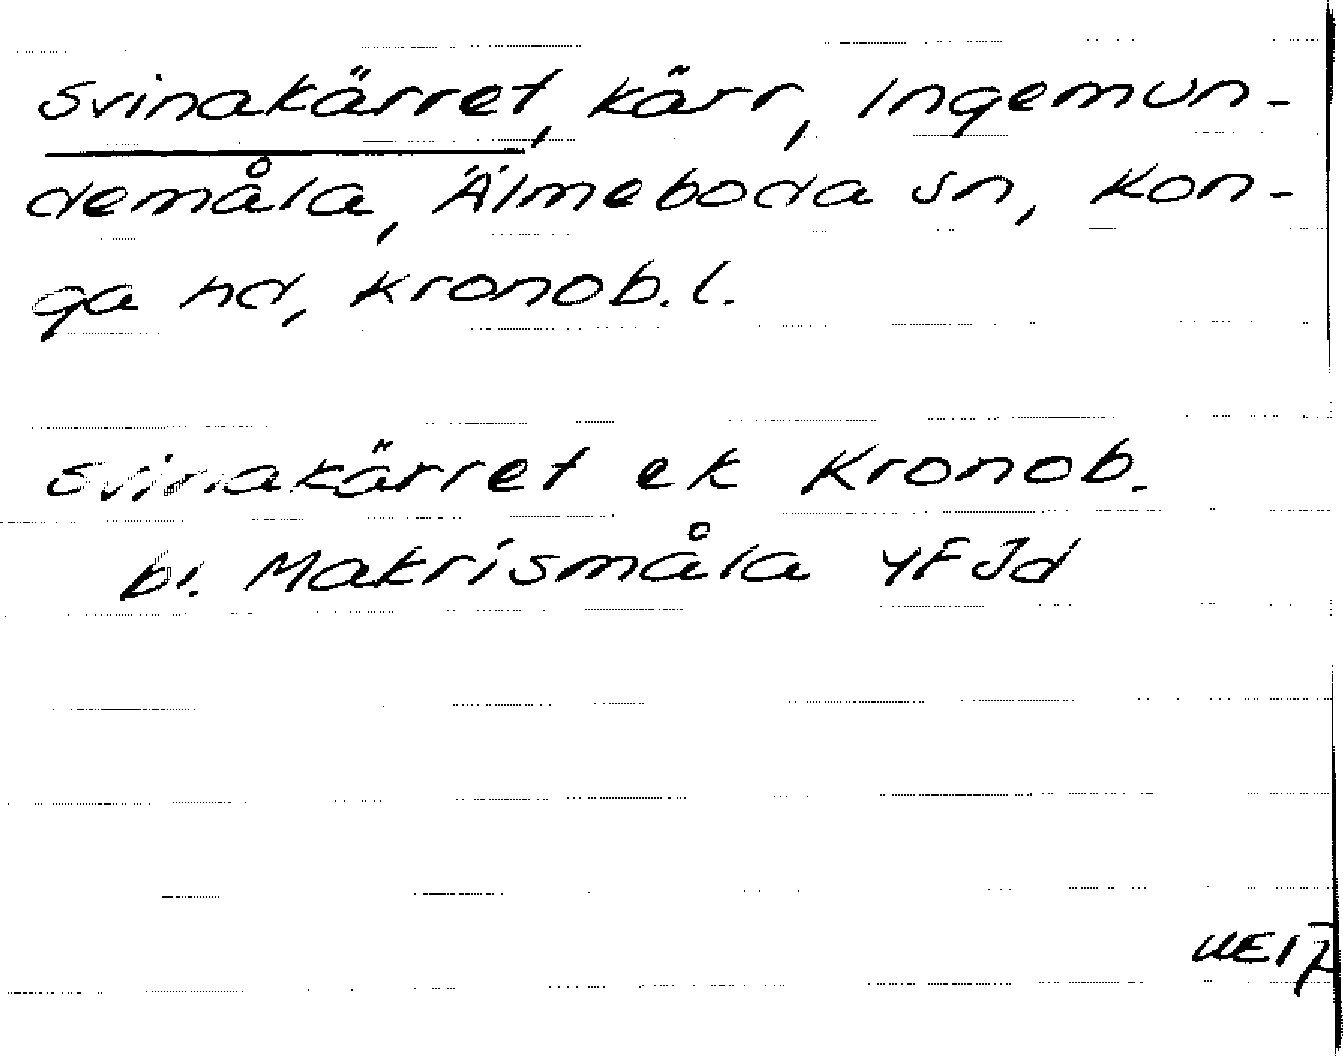 Svinakärret, kärr, Ingemun-
demåla, Älmeboda sn, Kon-
ga hd, Kronob. l.
Svinakärret ek Kronob.
bl. Makrismåla YFJd
UE17